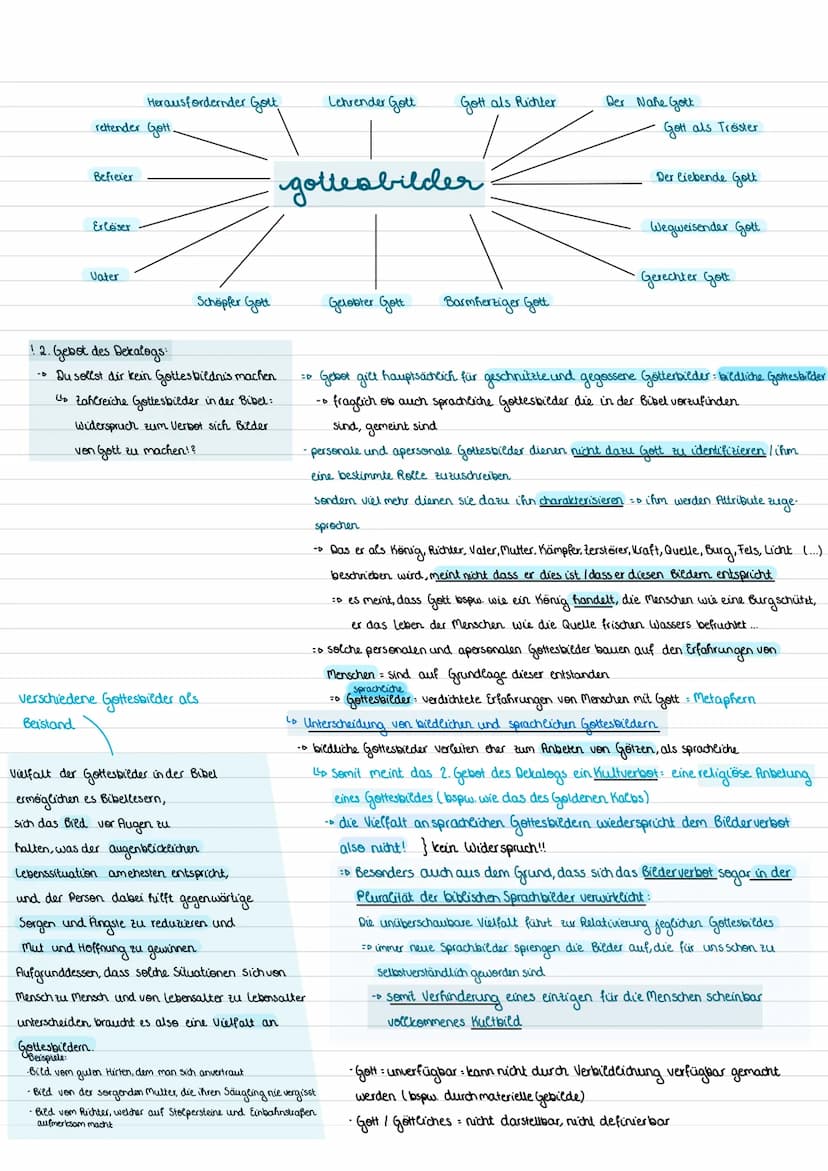 Herausfordernder Gott
Lehrender Gott
Gott als Richter
Der Nahe Gott
rettender Gott
Gott als Tröster
Befreier
gottesbilder
Der liebende Gott
Erlöser
Wegweisender Gott
Vater
Gerechter Gott
Schöpfer Gott
Gelobter Gott
Barmherziger Gott
! 2. Gebot des Dekalogs:
-> Du sollst dir kein Gottesbildnis machen
↳ Zahlreiche Gottesbilder in der Bibel:
Widerspruch zum Verbot sich Bilder
von Gott zu machen!?
=> Gebot gilt hauptsächlich für geschnitzte und gegossene Götterbilder = bildliche Gottesbilder
-> fraglich ob auch sprachliche Gottesbilder die in der Bibel vorzufinden
sind, gemeint sind
- personale und apersonale Gottesbilder dienen nicht dazu Gott zu identifizieren / ihm
eine bestimmte Rolle zuzuschreiben
Sondern viel mehr dienen sie dazu ihn charakterisieren => ihm werden Attribute zuge-
sprochen
-> Das er als König, Richter, Vater, Mutter, Kämpfer, Zerstörer, Kraft, Quelle, Burg, Fels, Licht (...)
beschrieben wird, meint nicht dass er dies ist / dass er diesen Bildern entspricht
=> es meint, dass Gott bspw. wie ein König handelt, die Menschen wie eine Burg schützt,
er das Leben der Menschen wie die Quelle frischen Wassers befruchtet ...
=> solche personalen und apersonalen Gottesbilder bauen auf den Erfahrungen von
Menschen = sind auf Grundlage dieser entstanden
sprachliche
=> Gottesbilder = verdichtete Erfahrungen von Menschen mit Gott = Metaphern
↳ Unterscheidung von bildlichen und sprachlichen Gottesbildern
-> bildliche Gottesbilder verleiten eher zum Anbeten von Götzen, als sprachliche
↳ Somit meint das 2. Gebot des Dekalogs ein Kultverbot = eine religiöse Anbetung
eines Gottesbildes (bspw. wie das des Goldenen Kalbs)
-> die Vielfalt an sprachlichen Gottesbildern wiederspricht dem Bilderverbot
also nicht! } kein Widerspruch!!
=> Besonders auch aus dem Grund, dass sich das Bilderverbot sogar in der
Pluralität der biblischen Sprachbilder verwirklicht:
Die unüberschaubare Vielfalt führt zur Relativierung jeglichen Gottesbildes
=> immer neue Sprachbilder sprengen die Bilder auf, die für uns schon zu
selbstverständlich geworden sind
-> somit Verhinderung eines einzigen für die Menschen scheinbar
vollkommenes Kultbild
· Gott = unverfügbar = kann nicht durch Verbildlichung verfügbar gemacht
werden (bspw. durch materielle Gebilde)
· Gott / Göttliches = nicht darstellbar, nicht definierbar
verschiedene Gottesbilder als
Beistand
Vielfalt der Gottesbilder in der Bibel
ermöglichen es Bibellesern,
sich das Bild vor Augen zu
halten, was der augenblicklichen
Lebenssituation am ehesten entspricht,
und der Person dabei hilft gegenwärtige
Sorgen und Ängste zu reduzieren und
Mut und Hoffnung zu gewinnen
Aufgrunddessen, dass solche Situationen sich von
Mensch zu Mensch und von Lebensalter zu Lebensalter
unterscheiden, braucht es also eine Vielfalt an
Gottesbildern.
Beispiele:
· Bild vom guten Hirten, dem man sich anvertraut
· Bild von der sorgenden Mutter, die ihren Säugling nie vergisst
· Bild vom Richter, welcher auf Stolpersteine und Einbahnstraßen
aufmerksam macht